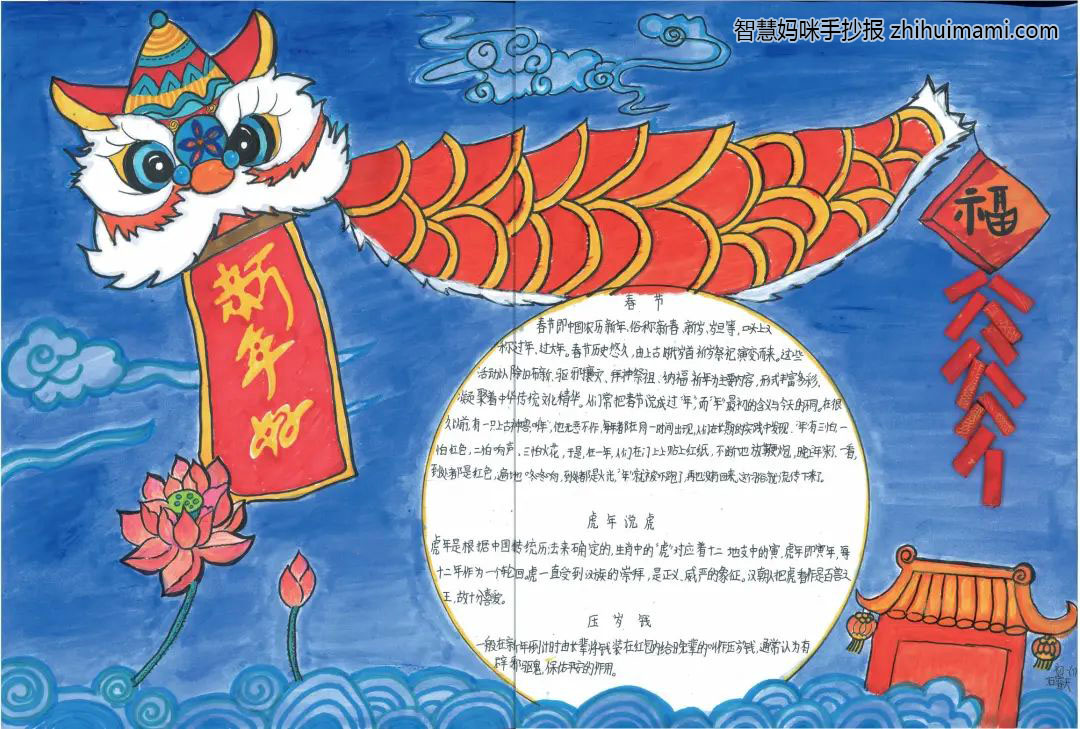 智慧妈咪手抄报 zhihuimami.com
福
新年好
春节
春节即中国农历新年，俗称新春、新岁、岁旦等，口头上又
称过年、过大年。春节历史悠久，由上古时代岁首祈岁祭祀演变而来。这些
活动以除旧布新、驱邪攘灾、拜神祭祖、纳福祈年为主要内容，形式丰富多彩，
凝聚着中华传统文化精华。人们常把春节说成过“年”，而“年”最初的含义与今天的不同。在很
久以前，有一只上古神兽叫“年”，他无恶不作，每年都在同一时间出现，人们在长期的实践中发现，年有三怕，一
怕红色，二怕响声，三怕火花，于是，在一年，人们在门上上贴上红纸，不断地放鞭炮，晚上年来了一看，
到处都是红色，遍地咚咚响，到处都是火光，“年”就被吓跑了，再也没有回来，这个习俗就流传下来了。
虎年说虎
虎年是根据中国传统历法来确定的，生肖中的“虎”对应着十二地支中的寅，虎年即寅年，每
十二年作为一个轮回。虎一直受到汉族的崇拜，是正义、威严的象征。汉朝人把虎看作是百兽之
王，故十分喜爱。
压岁钱
一般在新年倒计时由长辈将钱装在红包内给晚辈的叫作压岁钱，通常认为有
辟邪驱鬼，保佑平安的作用。